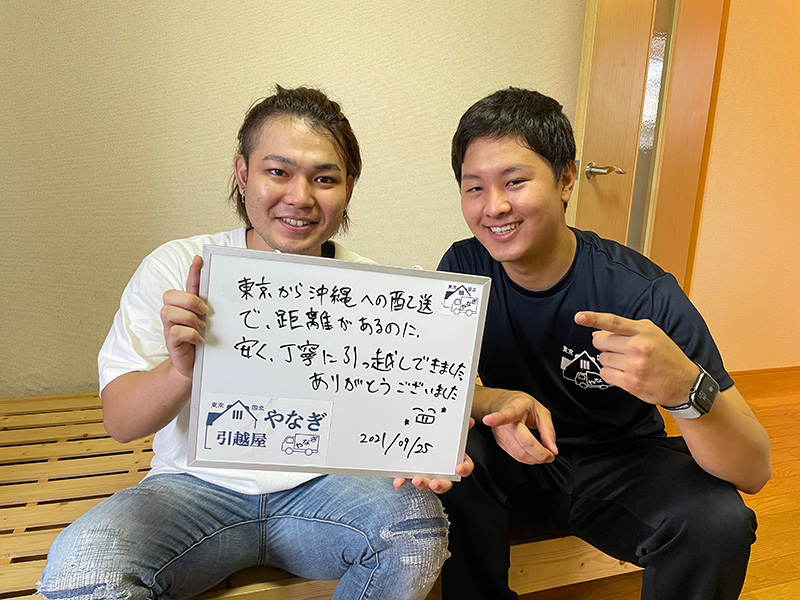 東京から沖縄への配送
で、距離があるのに、
安く、丁寧に引っ越しできました
ありがとうございました
2021/09/25
東京 国立
やなぎ
引越屋
やなぎ
東京 国立
やなぎ
東京
やなぎ